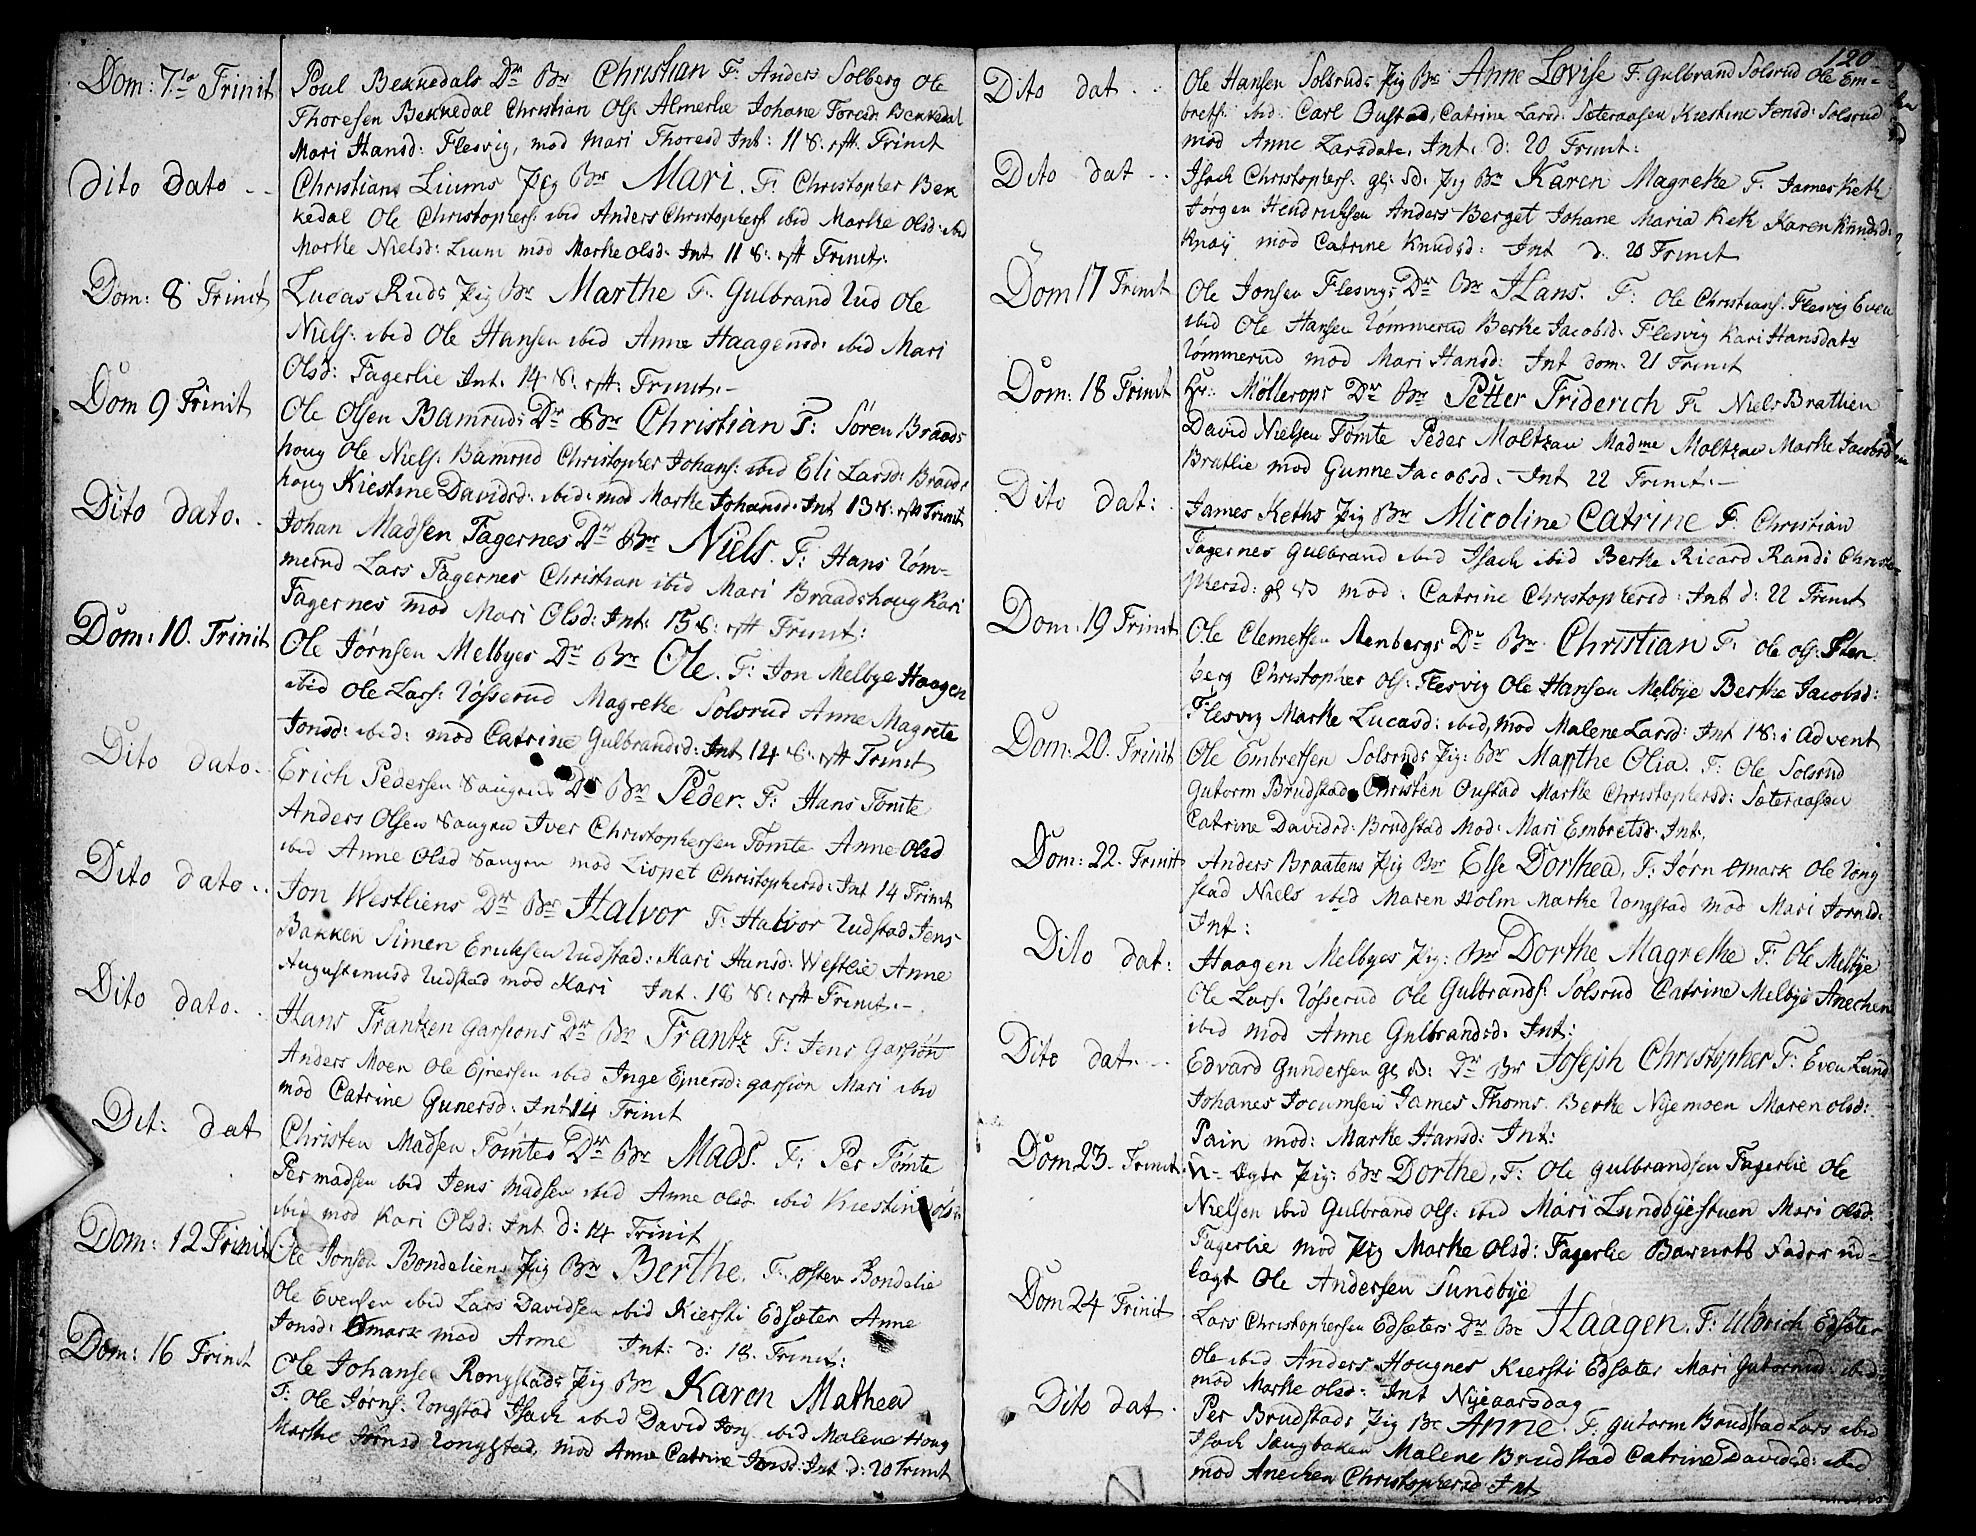 Dom: 7de Trinit
Poul Bekkedals Dr Br Christian F. Anders Solberg Ole
Thoresen Bekkedal Christian Ols. Almerlie Johane Toresd. Bekkedal
Mari Hansd: Flesvig, mod Mari Thoresd Int: 11 S. eft. Trinit
Dito dato
Christians Liums Pig Br Mari. F. Christopher Bek
kedal Ole Christophers: ibid Anders Christophers ibid Marthe Olsd. ibd
Marthe Nielsd: Lium mod Marthe Olsd. Int. 11 S. eft Trinit.
Dom: 8 Trinit
Lucas Ruds Pig Br Marthe F. Gulbrand Rud Ole
Niels. ibid Ole Hansen ibid Anne Haagensd. ibid Mari
Olsd: Fagerlie Int. 14 S. eft. Trinit.
Dom 9 Trinit
Ole Olsen Bamruds Dr Br Christian F: Søren Braads
houg Ole Niels. Bamrud Christopher Johans: ibid Eli Larsd: Braads
houg Kiestine Davidsd. ibid. mod Marthe Johansd. Int 13 S. eft Trinit
Dito dato.
Johan Madsen Fagernes Dr Br Niels. F. Hans Røm-
merud Lars Fagernes Christian ibid Mari Braadshoug Kari
Fagernes mod Mari Olsd: Int: 15 S. eft Trinit:
Dom: 10. Trinit
Ole Jørnsen Melbyes Dr Br Ole. F. Jon Melbye Haagen
ibid Ole Lars: Røsserud Magrethe Solsrud Anne Magrete
Jonsd: ibid: mod Catrine Gulbrandsd: Int 14 S. eft Trinit
Dito dato.
Erich Pedersen Saugens Dr Br Peder. F. Hans Tomte
Anders Olsen Saugen Iver Christophersen Tomte Anne Olsd
ibid Anne Olsd Saugen mod Lispet Christophersd. Int 14 Trinit
Dito dato
Jon Westliens Dr Br Halvor F. Halvor Rudstad Jens
Bakken Simen Ericksen Rudstad: Mari Hansd: Westlie Anne
Augustinusd Rudstad mod Kari Int. 18 S. eft Trinit.
Dito dato.
Hans Frantzen Garsions Dr Br Frantz F. Jens Garsion
Anders Moen Ole Ejnersen ibid Inge Ejnersd: garsion Mari ibid
mod Catrine Gunersd: Int 14 Trinit
Dit: dat
Christen Madsen Tomtes Dr Br Mads. F. Per Tomte
Per madsen ibid Jens Madsen ibid Anne Olsd ibid Kiestine Olsd.
ibid mod Kari Olsd: Int d: 14 Trinit
Dom: 12 Trinit
Ole Jonsen Bondeliens Pig Br Berthe. F. Østen Bondelie
Ole Evensen ibid Lars Davidsen ibid Kiersti Edsæter Anne
Jonsd: mark mod Anne Int: d: 18. Trinit:
Dom: 16 Trinit
Ole Johanse Rongstads Pig Br Karen Mathea
F. Ole Jørns: Rongstad Isach ibid David Jons ibid Malene Houg
Marthe Jørnsd Rongstad. mod Anne Catrine Jonsd. Int d: 20 Trinit
120
Dito dat.
Ole Hansen Solsruds Pig Br Anne Lovise F. Gulbrand Solsrud Ole Em-
bretf. ibid: Carl Oustad, Catrine Larsd: Sæteraasen Kiestine Jensd: Solsrud
mod Anne Larsdatr. Int. d: 20 Trinit.
Dito dat.
Isach Christophers. gl: Sd: Pig Br Karen Magrethe F. James Keth
Jørgen Hendricksen Anders Berget Johane Maria Keth Karen Knudsd:
Knay mod Catrine Knudsd: Int d. 20 Trinit
Dom 17 Trinit
Ole Jonsen Flesvigs Dr Br Hans. F: Ole Christians: Flesvig Even
ibid Ole Hansen Rømmerud Berthe Jacobsd: Flesvig Kari Hansdatr
Rømmerud mod Mari Hansd: Int dom: 21 Trinit
Dom: 18 Trinit
Hr: Møllerops Dr Br Petter Friderich F. Niels Brattlien
David Nielsen Tomte Peder Moltzau Madme Moltzau Marthe Jacobsd
Bratlie mod Gunne Jacobsd. Int 22 Trinit.
Dito dat:
James Keths Pig Br Micoline Catrine F: Christian
Fagernes Gulbrand ibid Isach ibid Berthe Ricard Randi Christo-
phersd: gl Sd mod. Catrine Christophersd: Int d: 22 Trinit
Dom. 19 Trinit.
Ole Clemetsen Stenbergs Dr Br Christian F. Ole Ols. Sten
berg Christopher Ols: Flesvig Ole Hansen Melbye Berthe Jacobsd:
Flesvig Marthe Lucasd: ibid, mod Malene Larsd: Int 1 S. i Advent
Dom. 20. Trinit
Ole Embretsen Solsruds Pig: Br Marthe Olia. F. Ole Solsrud
Gutorm Brudstad Christen Oustad Marthe Christophersd: Sæteraasen
Catrine Davidsd: Brudstad Mod: Mari Embretsd: Int:
Dom: 22. Trinit
Anders Braatens Pig Br Else Dorthea, F. Jørn mark Ole Rong
stad Niels ibid Maren Holm Marthe Rongstad mod Mari Jørnsd.
Int:
Dito dat:
Haagen Melbyes Pig: Br Dorthe Magrethe F. Ole Melbye
Ole Lars. Røsserud Ole Gulbrands: Solsrud Catrine Melbye Anechen
ibid mod Anne Gulbrandsd. Int:
Dito dat.
Edvard Gundersen gl Sd: Dr Br Joseph Christopher F: Even Lund
Johanes Jocumsen James Thoms. Berthe Nyemoen Maren Olsd:
Pain mod: Marthe Hansd: Int:
Dom 23. Trinit.
Pig: Br Dorthe, F: Ole Gulbrandsen Fagerlie Ole
Nielsen ibid Gulbrand Ols: ibid Mari Lundbyestuen Mari Olsd
Fagerlie mod Pig Marthe Olsd: Fagerlie Barnets Fader ud-
lagt Ole Andersen Sundbye
Dom 24 Trinit
Lars Christophersen Edsæters Dr Br Haagen. F: Uldrich Edsæter
Ole ibid Anders Hougnes Kiersti Edsæter Mari Gutormsd. ibid
mod Marthe Olsd: Int Nyeaarsdag
Dito dat.
Per Brudstads Pig Br Anne. F. Gutorm Brudstad Lars ibid
Isach Saugbaken Malene Brudstad Catrine Davidsd: ibid
mod Anechen Christophersd Int